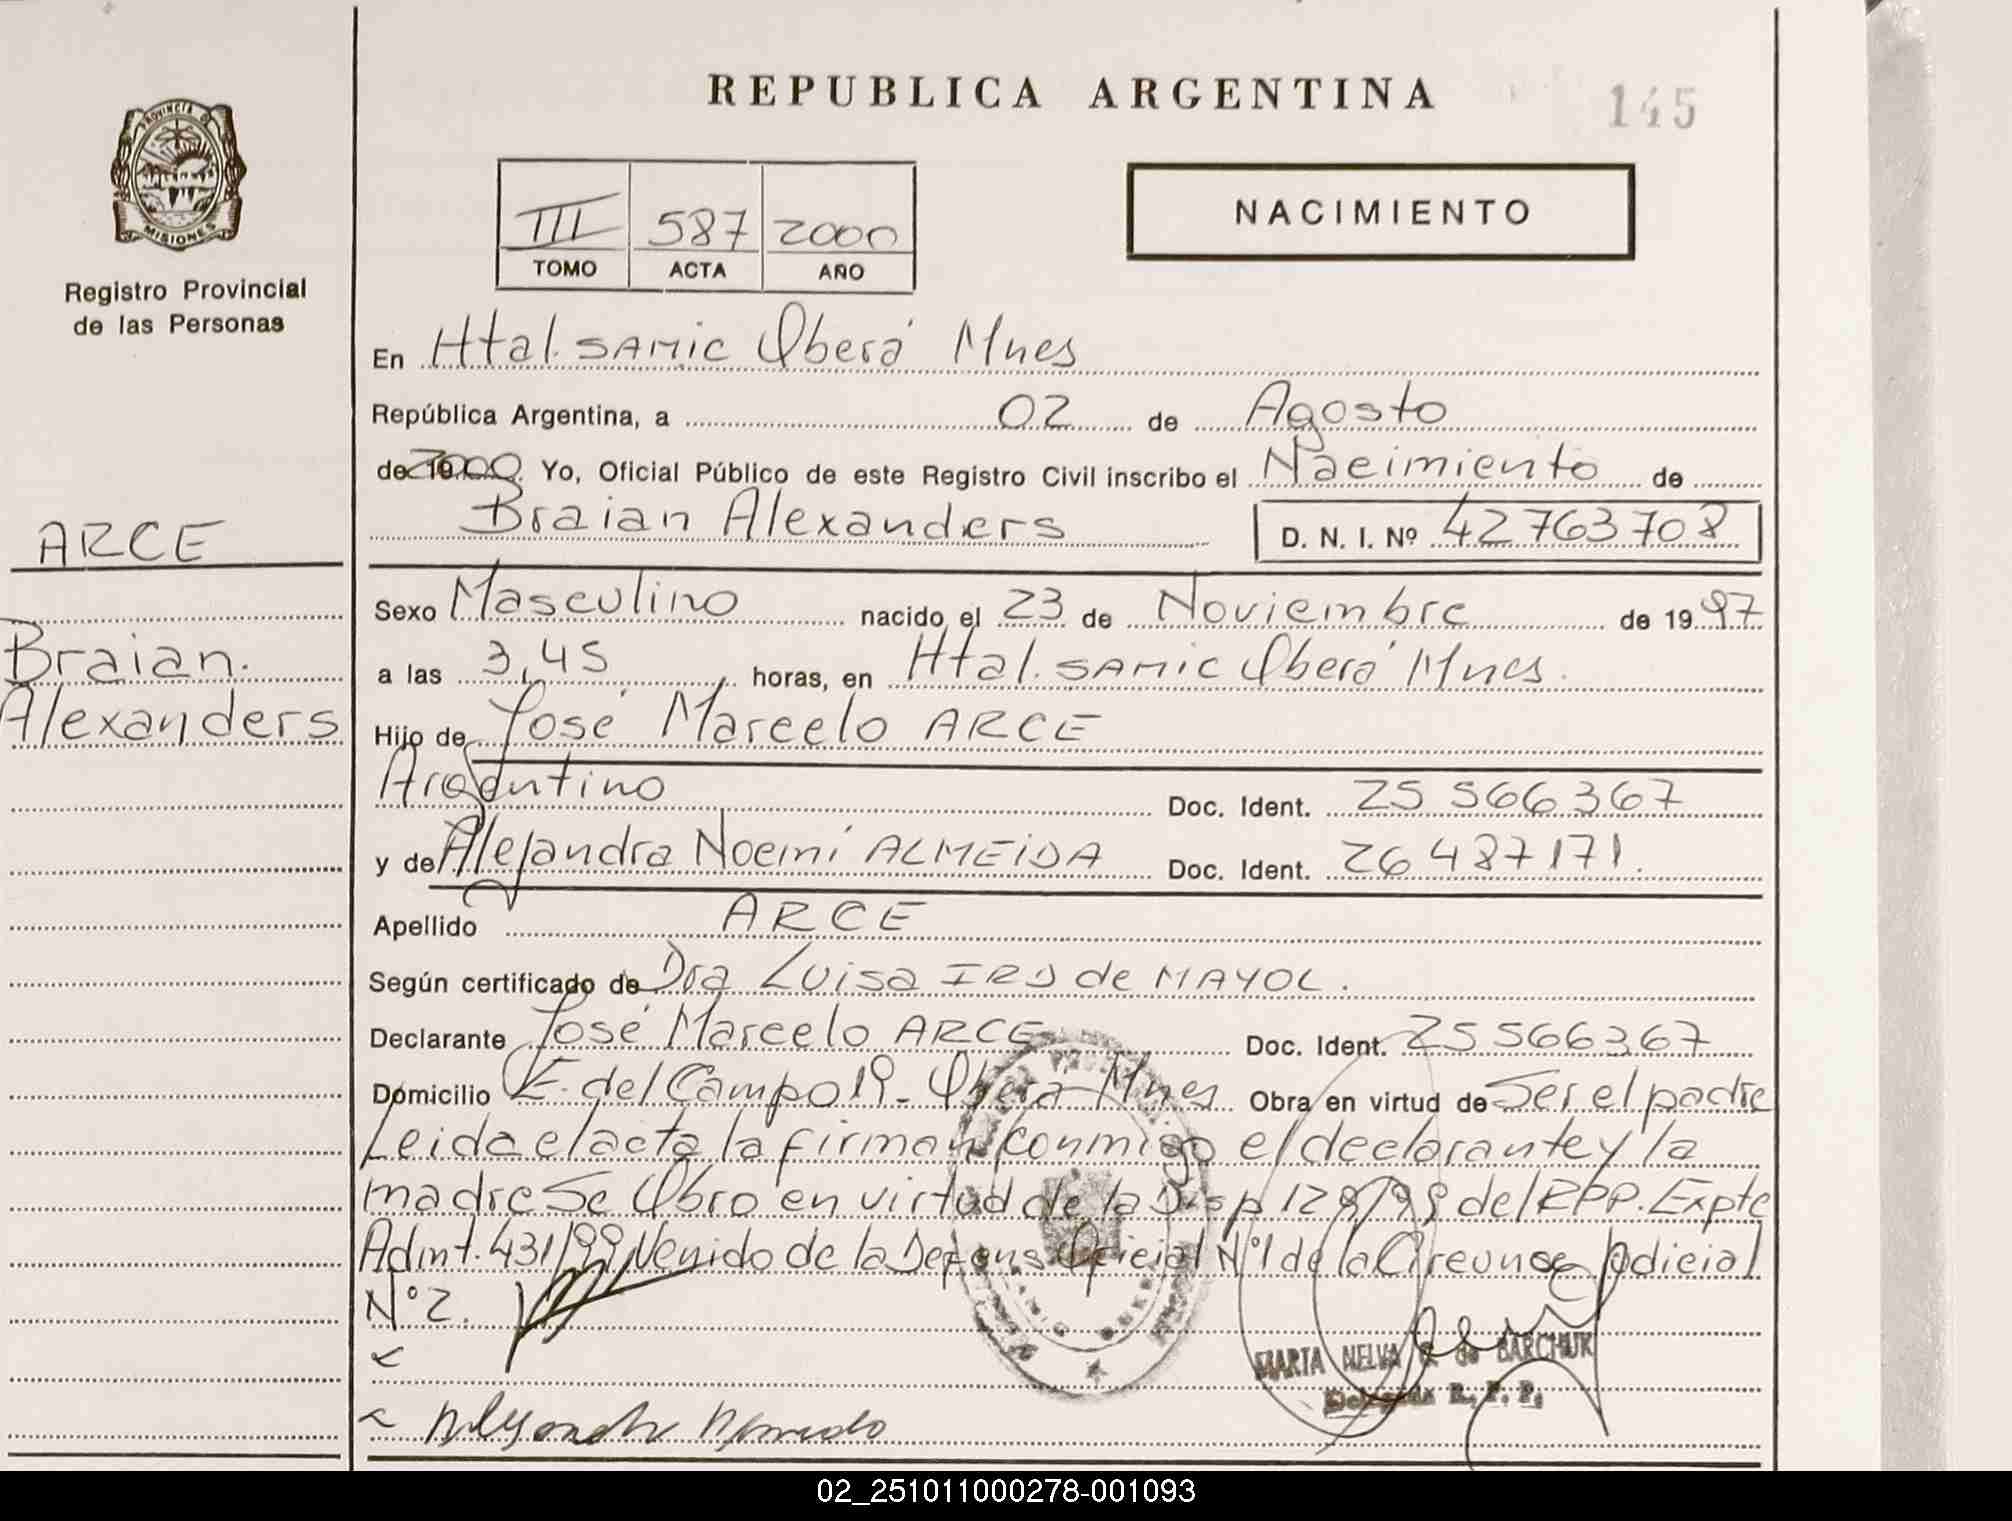 REPUBLICA ARGENTINA
145
PROVINCIA DE
MISIONES
Registro Provincial
de las Personas
III 587 2000
TOMO ACTA AÑO
NACIMIENTO
En Htal. SAMIC Oberá Mnes
República Argentina, a 02 de Agosto
de 2000 Yo, Oficial Público de este Registro Civil inscribo el Nacimiento de
Braian Alexanders D. N. I. Nº 42763708
ARCE
Braian.
Alexanders
Sexo Masculino nacido el 23 de Noviembre de 1997
a las 3,45 horas, en Htal. SAMIC Oberá Mnes.
Hijo de José Marcelo ARCE
Argentino Doc. Ident. 25 566367
y de Alejandra Noemí ALMEIDA Doc. Ident. 26 487171.
Apellido ARCE
Según certificado de Dra Luisa de MAYOL.
Declarante José Marcelo ARCE Doc. Ident. 25566367
Domicilio E. del Campo 19- Oberá Mnes Obra en virtud de Ser el padre
Leida el acta la firman conmigo el declarante y la
madre Se Obro en virtud de la Disp 128/98 del RPP. Expte
Admt. 431/99 Venido de la Defens Oficial Nº1 de la Circunsc Judicial
Nº 2.
MARTA NELVA de BARCHUK
Delegada R. P. P.
02_251011000278-001093